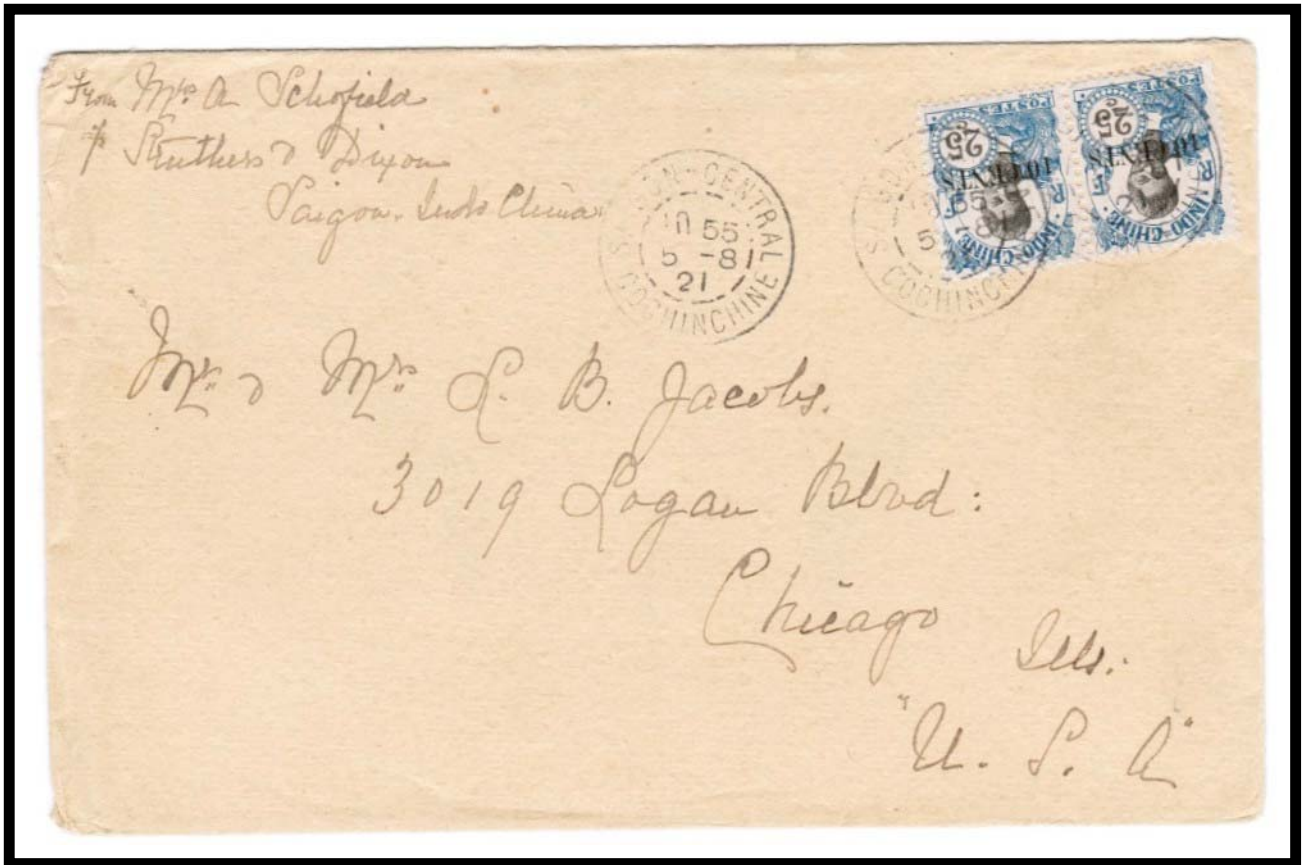 From Mrs. A Schofield
℅ Struthers & Dixon
Saigon. Indo China
SAIGON-CENTRAL
10 55
5 -8
21
COCHINCHINE
POSTES
25c
10 CENTS
R F
INDO-CHINE
POSTES
25c
10 CENTS
R F
INDO-CHINE
10 55
5 -8
21
COCHINCHINE
Mr. & Mrs L. B. Jacobs.
3019 Logan Blvd:
Chicago
Ills.
"U. S. A"